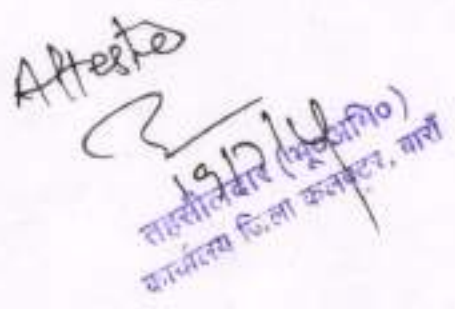 Atteste
19/7/14
तहसीलदार (भू०अभि०)
कार्यालय जिला कलक्टर, बारॉं